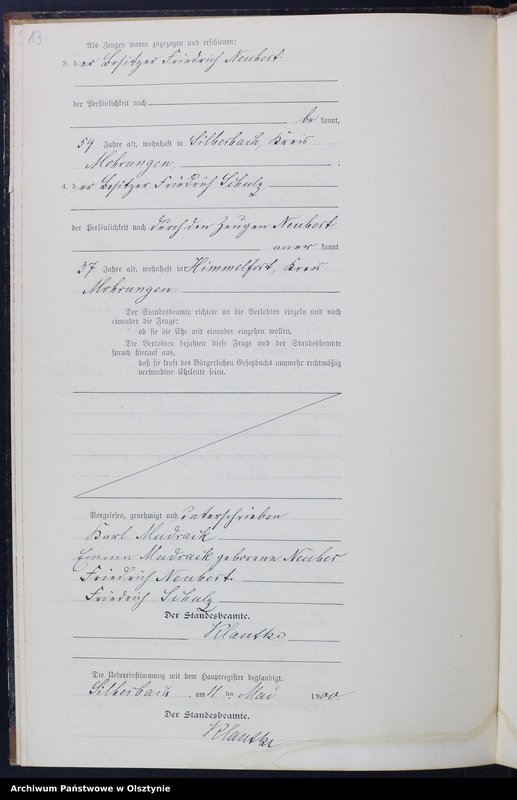 13
Als Zeugen waren zugezogen und erschienen:
3. der Besitzer Friedrich Neubert
der Persönlichkeit nach
be kannt,
59 Jahre alt, wohnhaft in Silberbach, Kreis
Mohrungen ;
4. der Besitzer Friedrich Schulz
der Persönlichkeit nach durch den Zeugen Neubert
aner kannt
37 Jahre alt, wohnhaft in Himmelfort, Kreis
Mohrungen.
Der Standesbeamte richtete an die Verlobten einzeln und nach
einander die Frage:
ob sie die Ehe mit einander eingehen wollen.
Die Verlobten bejahten diese Frage und der Standesbeamte
sprach hierauf aus,
daß sie kraft des Bürgerlichen Gesetzbuchs nunmehr rechtmäßig
verbundene Eheleute seien.
Vorgelesen, genehmigt und unterschrieben
Karl Madraik
Emma Madraik, geborene Neuber
Friedrich Neubert
Friedrich Schulz
Der Standesbeamte.
Klautke
Die Uebereinstimmung mit dem Hauptregister beglaubigt.
Silberbach, am 11 ten Mai 1900.
Der Standesbeamte.
Klautke
Archiwum Państwowe w Olsztynie